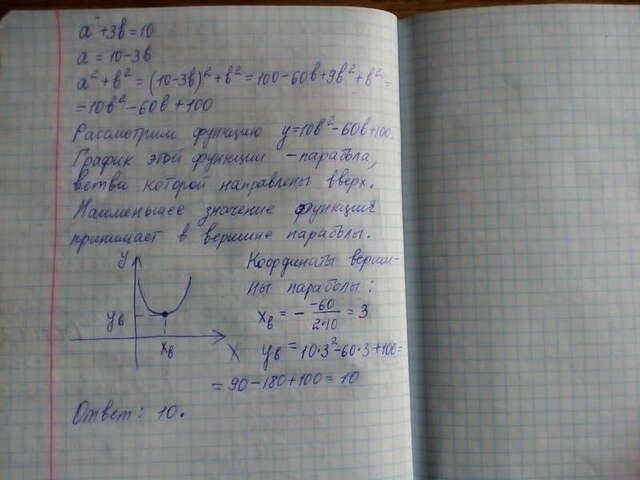 a + 3в = 10
a = 10 - 3в
a² + в² = (10-3в)² + в² = 100 - 60в + 9в² + в² =
= 10в² - 60в + 100
Рассмотрим функцию y = 10в² - 60в + 100.
График этой функции - парабола,
ветви которой направлены вверх.
Наименьшее значение функция
принимает в вершине параболы.
y Координаты верши-
ны параболы:
yв xв = - -60/2·10 = 3
xв x yв = 10·3² - 60·3 + 100 =
= 90 - 180 + 100 = 10
Ответ: 10.